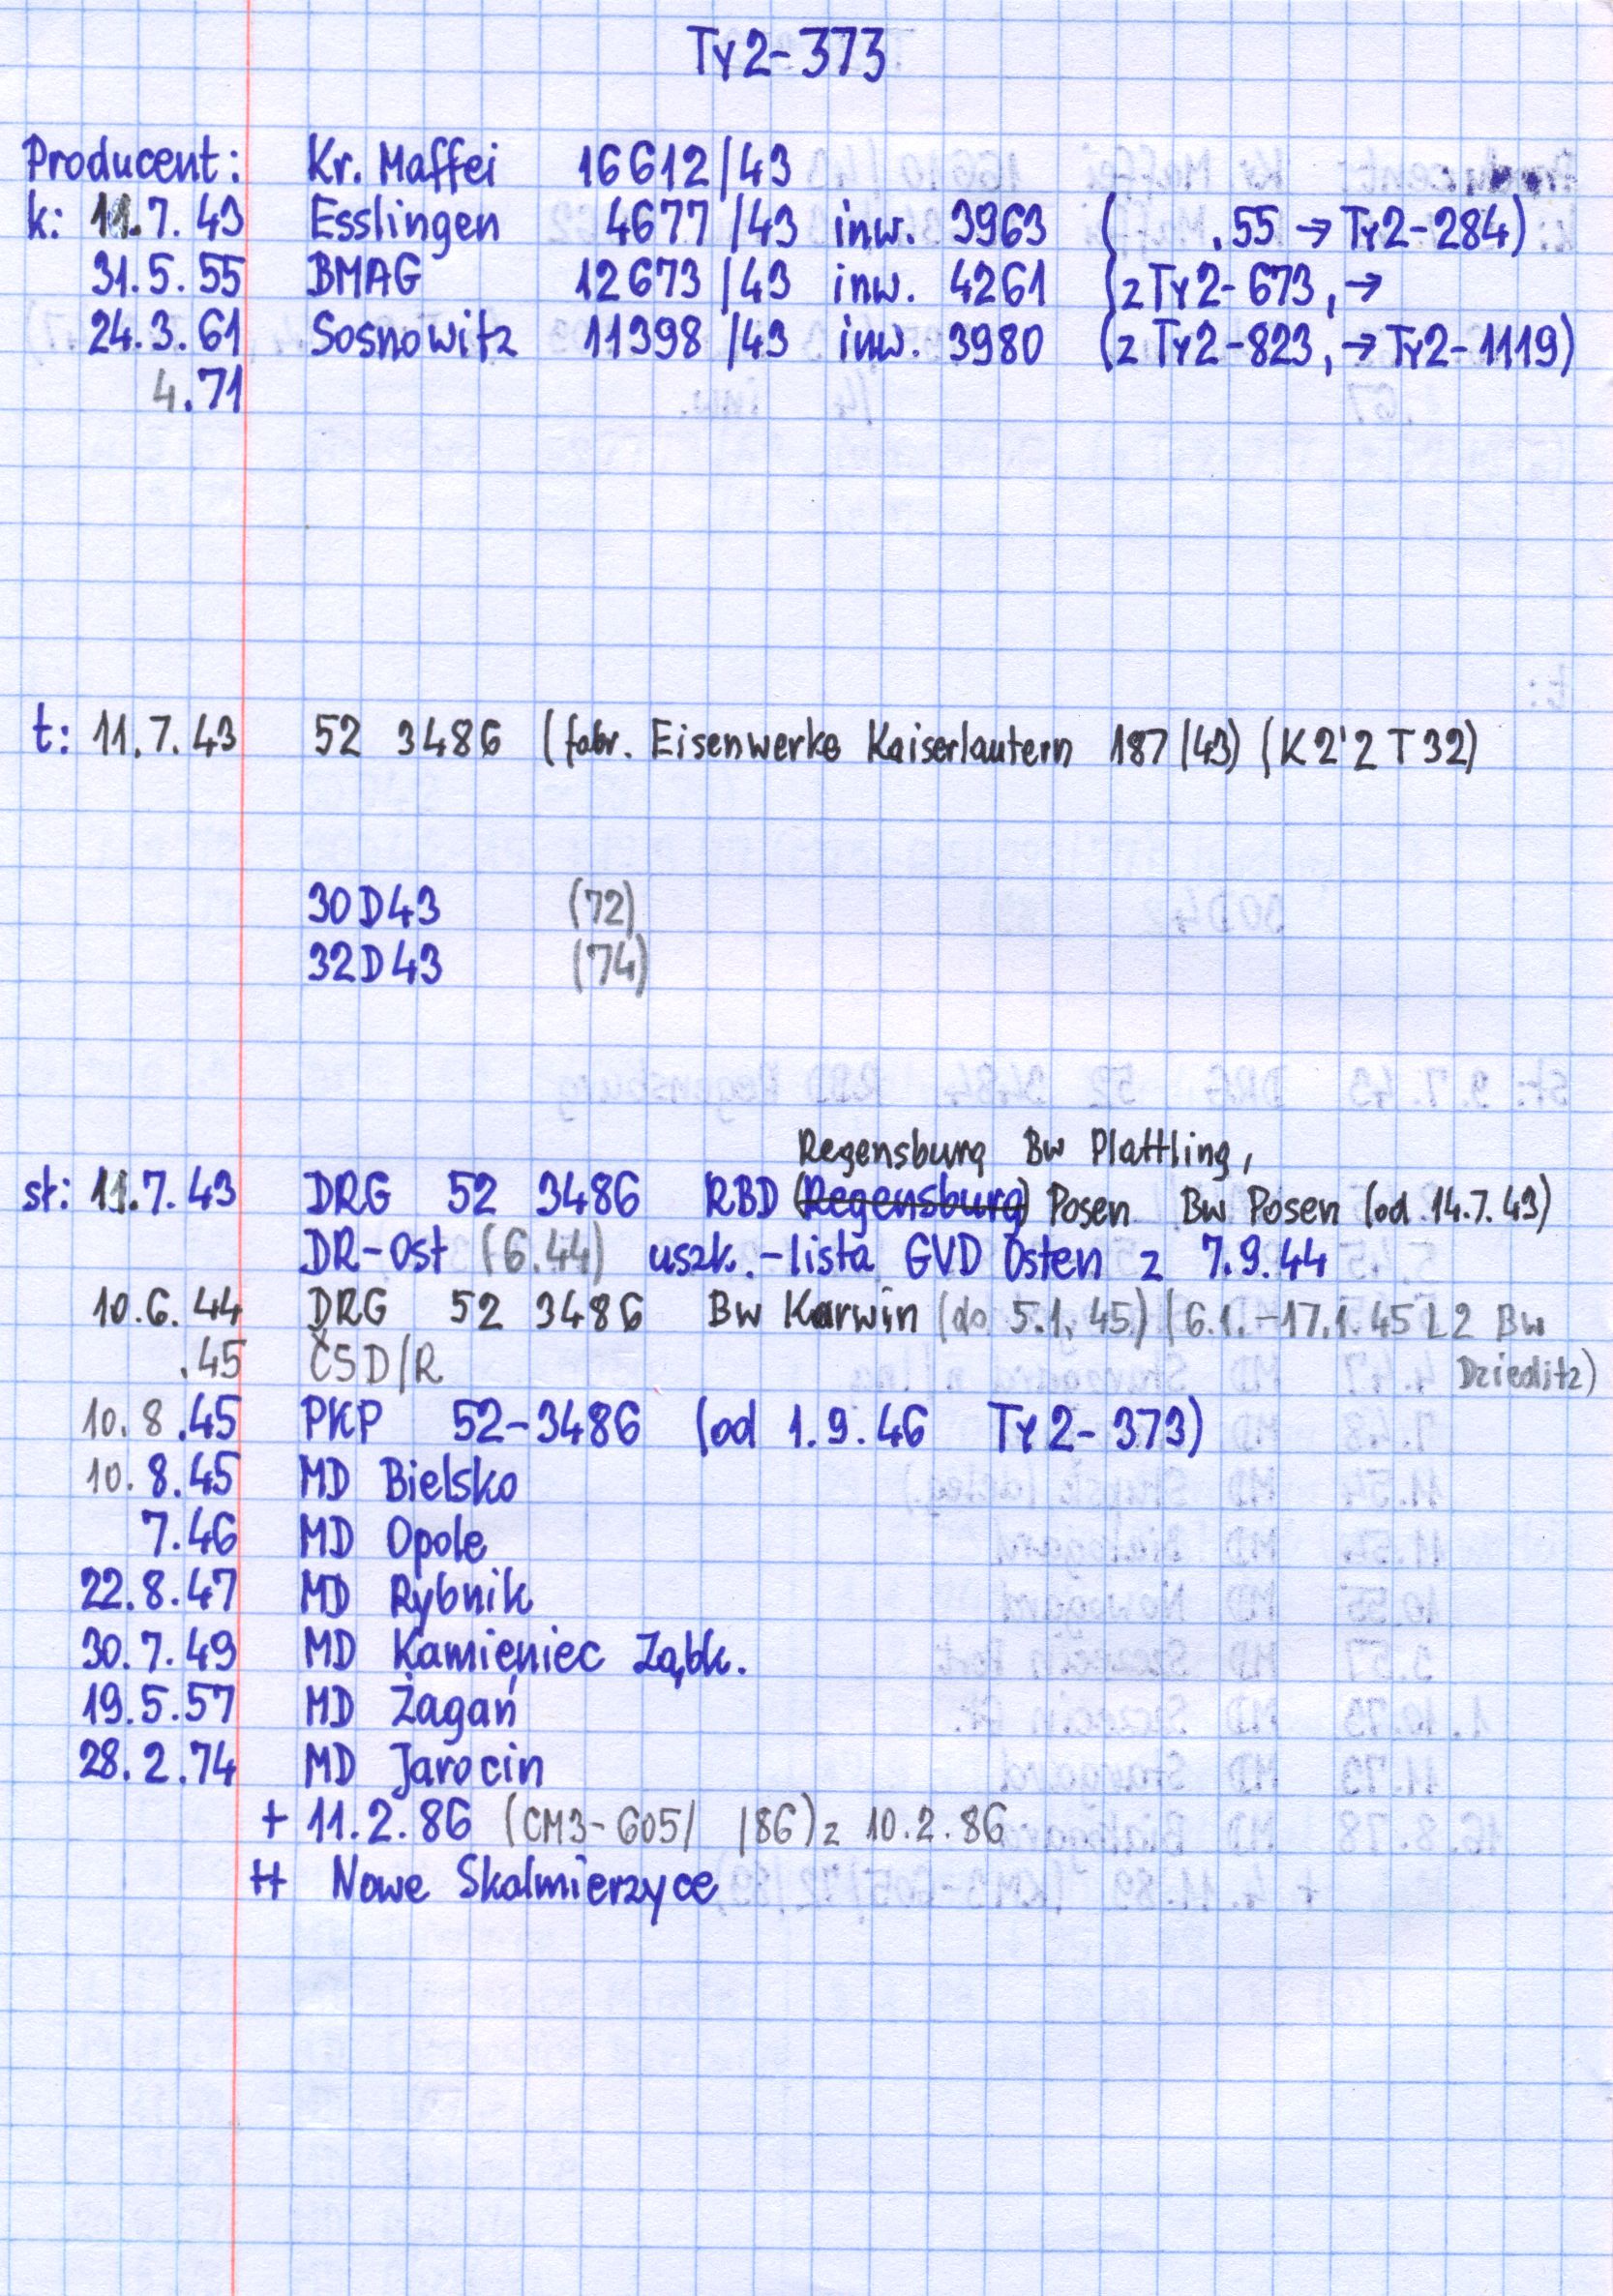 Ty2-373
Producent: Kr. Maffei 16612/43
k: 11.7.43 Esslingen 4677/43 inw. 3963 ( .55 → Ty2-284)
31.5.55 BMAG 12673/43 inw. 4261 (z Ty2-673, →
24.3.61 Sosnowitz 11398/43 inw. 3980 (z Ty2-823, → Ty2-1119)
4.71
t: 11.7.43 52 3486 (fabr. Eisenwerke Kaiserlautern 187/43) (K2'2T32)
30D43 (72)
32D43 (74)
Regensburg Bw Plattling,
st: 11.7.43 DRG 52 3486 RBD (Regensburg) Posen Bw Posen (od 14.7.43)
DR-Ost (6.44) uszk.-lista GVD Osten z 7.9.44
10.6.44 DRG 52 3486 Bw Karwin (do 5.1.45) (6.1.-17.1.45 L2 Bw
Dzieditz)
.45 ČSD/R
10.8.45 PKP 52-3486 (od 1.9.46 Ty2-373)
10.8.45 MD Bielsko
7.46 MD Opole
22.8.47 MD Rybnik
30.7.49 MD Kamieniec Ząbk.
19.5.57 MD Żagań
28.2.74 MD Jarocin
+ 11.2.86 (CM3-605/ /86) z 10.2.86
++ Nowe Skalmierzyce